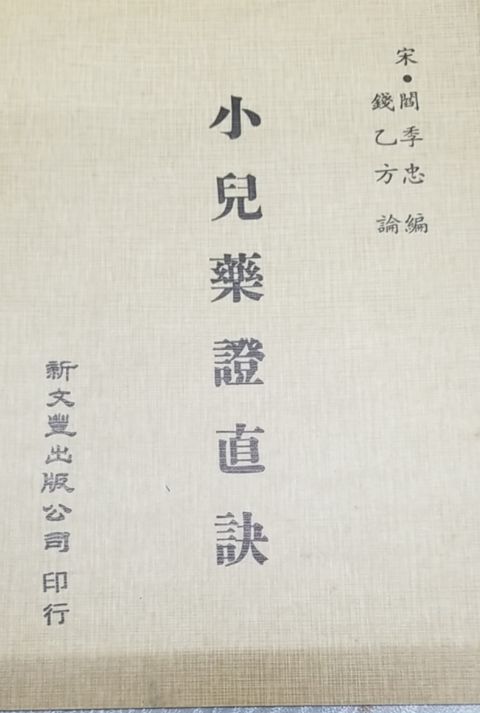 宋•閻季忠編
錢乙方論
小兒藥證直訣
新文豐出版公司印行